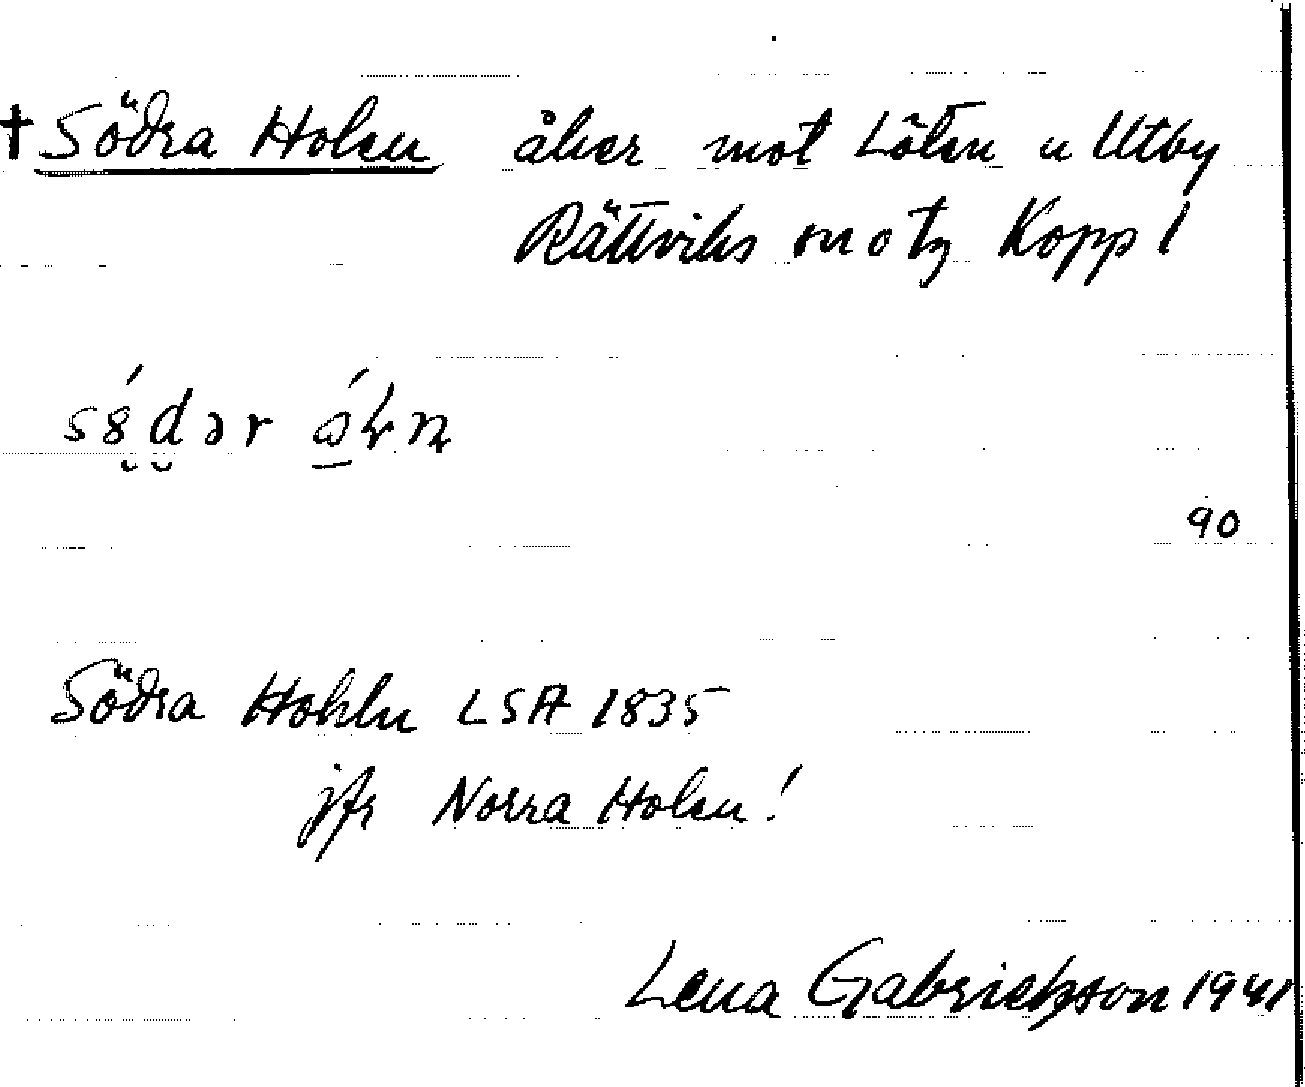 † Södra Holen åker mot Löten u Utby
Rättviks sn o tg Kopp l
Södra Hohln LSA 1835
jfr Norra Holen!
90
Lena Gabrielsson 1941